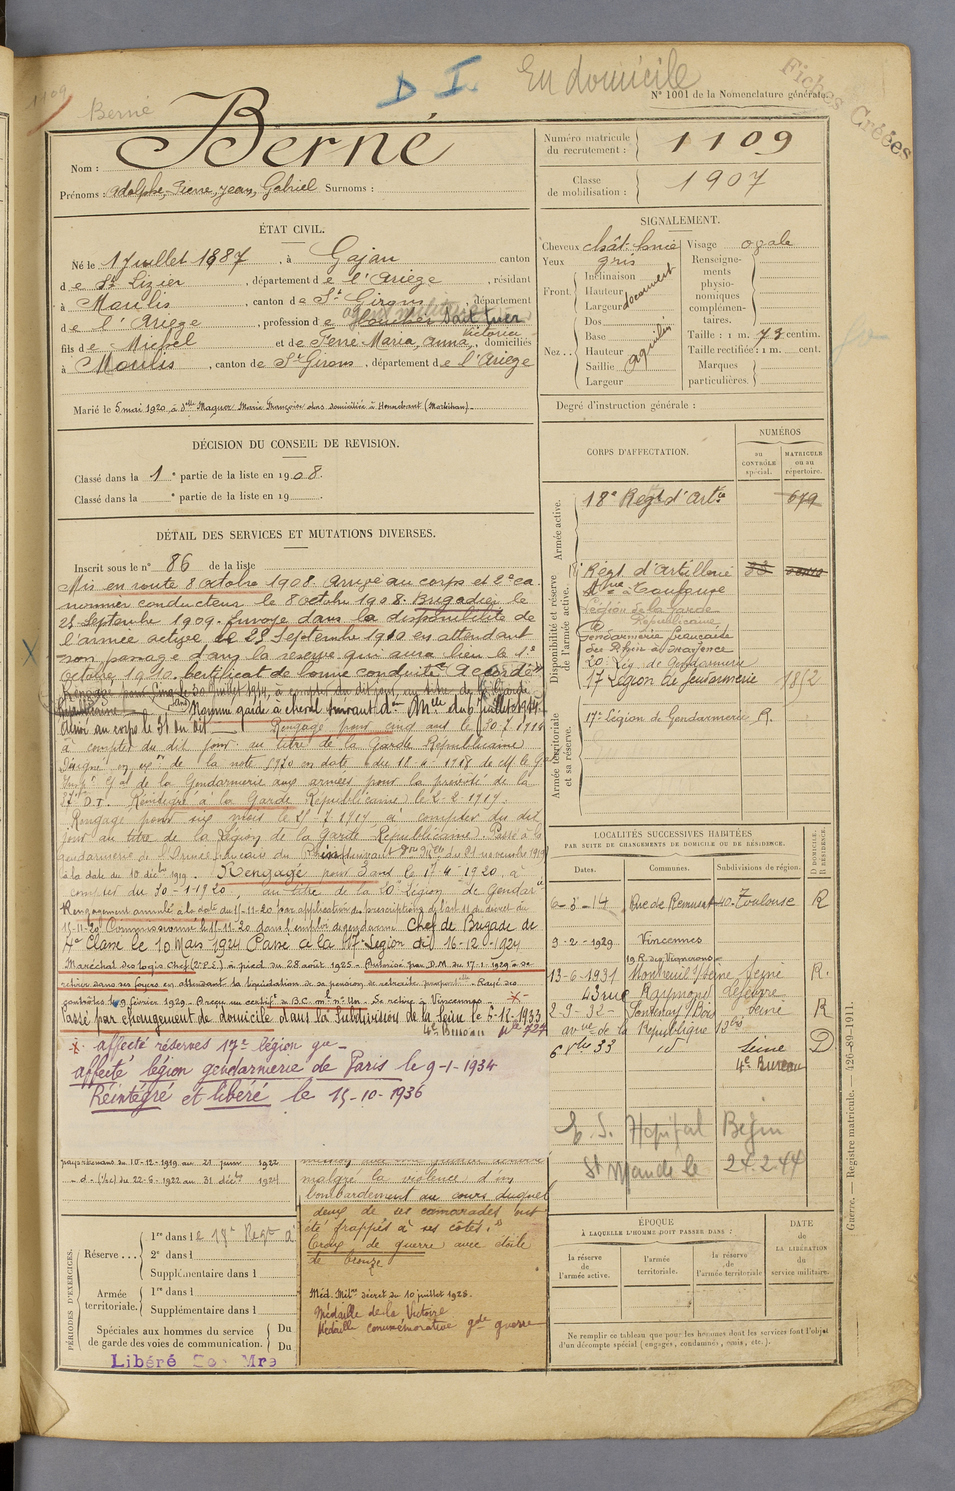 1109
Berné
D I.
En domicile
N° 1001 de la Nomenclature générale.
Fiches Créées
Nom : Berné
Prénoms : Adolphe, Pierre, Jean, Gabriel Surnoms :
Numéro matricule du recrutement : 1109
Classe de mobilisation : 1907
ÉTAT CIVIL.
Né le 1 Juillet 1887, à Gajan canton
de St Lizier, département de l'Ariège, résidant
à Moulis, canton de St Girons, département
de l'Ariège, profession de boucher
fils de Michel et de Terre Maria, Anna, Victorine domiciliés
à Moulis, canton de St Girons, département de l'Ariège
Marié le 5 mai 1920, à Delle Maguer Marie Françoise alors domiciliée à Hennebont (Morbihan).
SIGNALEMENT.
Cheveux chât. foncé
Yeux gris
Front.
Inclinaison
Hauteur
Largeur
découvert
Nez..
Dos
Base
Hauteur
Saillie
Largeur
Visage ovale
Renseignements physionomiques complémentaires.
Taille : 1 m. 73 centim.
Taille rectifiée : 1 m. cent.
Marques particulières.
Degré d'instruction générale :
DÉCISION DU CONSEIL DE REVISION.
Classé dans la 1e partie de la liste en 1908.
Classé dans la e partie de la liste en 19
DÉTAIL DES SERVICES ET MUTATIONS DIVERSES.
Inscrit sous le n° 86 de la liste
Mis en route 8 octobre 1908. Arrivé au corps et 2e ca
nonnier conducteur le 8 octobre 1908. Brigadier le
25 Septembre 1909. Envoyé dans la disponibilité de
l'armée active le 25 Septembre 1910 en attendant
son passage dans la réserve qui aura lieu le 1er
Octobre 1910. Certificat de bonne conduite "Accordé"
Rengagé pour cinq ans le 30 juillet 1914, à compter du dit jour, au titre de la Garde
Républicaine Nommé garde à cheval suivant Don Mlle du 6 juillet 1914
Arrivé au corps le 31 du dit Rengagé pour cinq ans le 30.7.1914
à compter du dit jour au titre de la Garde Républicaine
de la Gendarmerie aux armées pour la prévôté de la
Réintégré à la Garde Républicaine le 2-2-1919.
Rengagé pour six mois le
jour au titre de la Légion de la Garde Républicaine. Passé à la
gendarmerie de l'Armée française du Rhin du 21 novembre 1919
à la date du 10 décbre 1919. Rengagé pour ans le 1920, à
compter du 30-1-1920, au titre de la 20e Légion de Gendarie
Rengagement annulé à la date du 15-11-20 par application des prescriptions de l'art 11 du décret du
15-11-20 Commissionné le 15-11-20 dans l'emploi de gendarme Chef de Brigade de
4e Classe le 10 Mars 1924 Passé à la 17e Légion du 16-12-1924
Maréchal des Logis Chef à pied du 28 août 1925 - Autorisé par D.M. du 17-1-1929 à se
retirer dans ses foyers en attendant la liquidation de sa pension de retraite proportlle. Rayé des
contrôles le 9 février 1929 - Se retire à Vincennes.
Passé par changement de domicile dans la Subdivision de la Seine le 6-11-1933
4e Bureau
affecté réserves 17e légion gie
affecté légion gendarmerie de Paris le 9-1-1934
Réintégré et libéré le 15-10-1936
pays rhénans du 10-12-1919 au 21 juin 1922
du 22-6-1922 au 31 décbre 1924
malgré la violence d'un
bombardement au cours duquel
deux de ses camarades ont
été frappés à ses côtés."
Croix de guerre avec étoile
de bronze
Méd. Milre décret du 10 juillet 1928.
Médaille de la Victoire
Médaille commémorative gde guerre
CORPS D'AFFECTATION.
NUMÉROS
au CONTRÔLE spécial.
MATRICULE ou au répertoire.
Armée active.
18e Régt d'Artie 679
Disponibilité et réserve de l'armée active.
18e Régt d'Artillerie
à Toulouse
Légion de la Garde
Républicaine,
Gendarmerie française
du Rhin à Mayence
20 Lég. de Gendarmerie
17 Légion de Gendarmerie 1852
Armée territoriale et sa réserve.
17e Légion de Gendarmerie R.
LOCALITÉS SUCCESSIVES HABITÉES
PAR SUITE DE CHANGEMENTS DE DOMICILE OU DE RÉSIDENCE.
Dates. Communes. Subdivisions de région. D. DOMICILE. R. RÉSIDENCE.
Rue de Rémusat 40 Toulouse R
9-2-1929 Vincennes
19 R. des Vignerons
13-6-1931 Montreuil s/Seine Seine R.
43 rue Raymond Lefebvre
2-9-32 Fontenay s/Bois Seine R
avnue de la République 13bis
6 9bre 33 id Seine D
4e Bureau
Hopital Begin
St Mandé le 24.2.44
PÉRIODES D'EXERCICES.
Réserve ...
1re dans le 18e Regt d'A
2e dans l
Supplémentaire dans l
Armée territoriale.
1re dans l
Supplémentaire dans l
Spéciales aux hommes du service de garde des voies de communication.
Du
Du
Libéré
ÉPOQUE
À LAQUELLE L'HOMME DOIT PASSER DANS :
la réserve de l'armée active.
l'armée territoriale.
la réserve de l'armée territoriale
DATE de LA LIBÉRATION du service militaire.
Ne remplir ce tableau que pour les hommes dont les services font l'objet
d'un décompte spécial (engagés, condamnés, omis, etc.).
Guerre. — Registre matricule. — 426-89-1911.